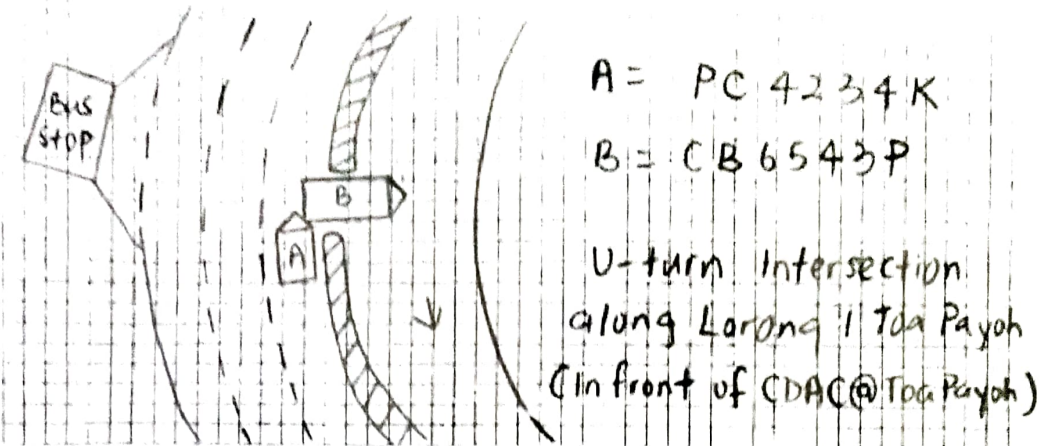 Bus
stop
B
A
A = PC 4234K
B = CB 6543P
U-turn Intersection
along Lorong 1 Toa Payoh
(In front of CDAC@Toa Payoh)